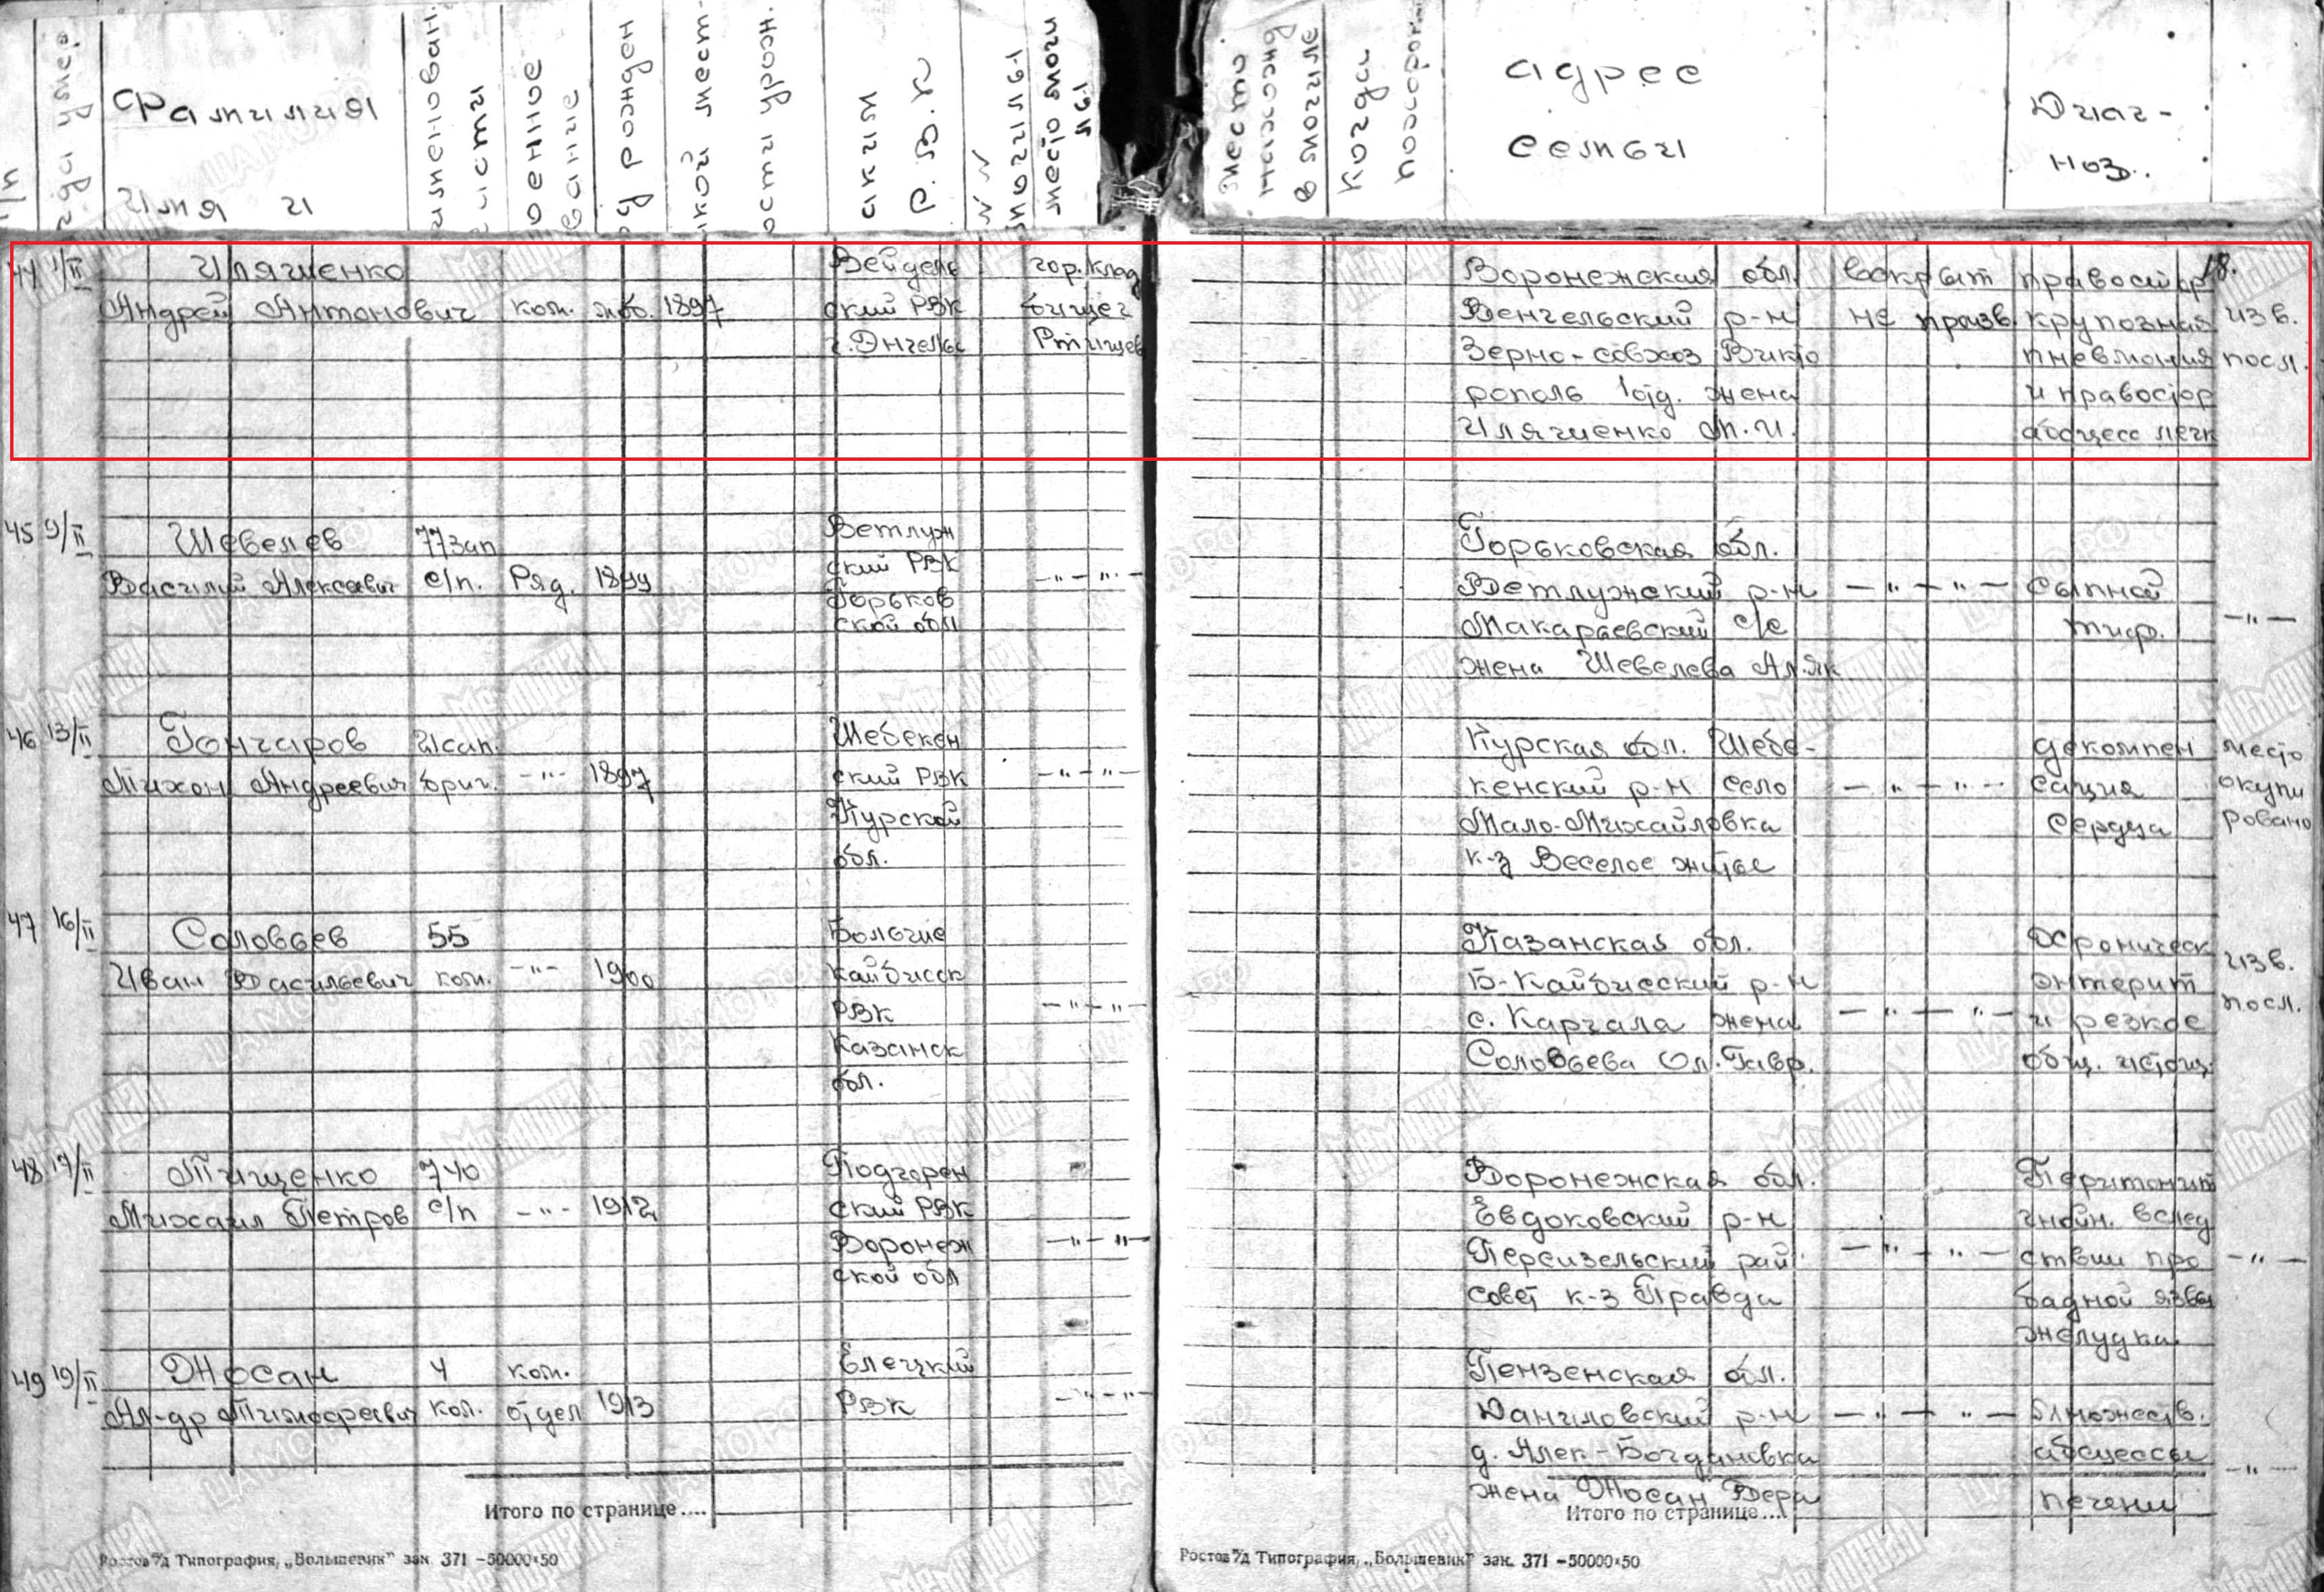 п/п
гда умер
Фамилия
Имя и
именован.
части
военное
звание
ду рожден
кой мест-
ости урож.
аким
Р.В.К
№№
могилы
место моги
лы
место
нахожд
в могиле
Когда
похорон.
адрес
семьи
Диаг-
ноз.
18.
44 1/II Иляшенко
Андрей Антонович ком. жоб. 1897
Вейдель
ский РВК
г. Энгельс
гор. клад
бище г
Ртищев
Воронежская обл.
Венгельский р-н
Зерно-совхоз Викто
рополь 1 отд. жена
Иляшенко М.И.
вскрыт
не произв.
правостор
крупозная
пневмония
и правостор
абсцесс легк
изв.
посл.
45 9/II Шевелев 77 зап
Василий Алексеевич с/п. Ряд. 1899
Ветлуж
ский РВК
Горьков
ской обл
— „ — „ —
Горьковская обл.
Ветлужский р-н
Макараевский с/с
жена Шевелева Ал. Як
— „ — „ —
Сыпной
тиф.
— „ —
46 13/II Гончаров 21 сап.
Тихон Андреевич бриг. — „ — 1897
Шебекен
ский РВК
Курской
обл.
— „ — „ —
Курская обл. Шебе-
кенский р-н село
Мало-Михайловка
к-з Веселое житье
— „ — „ —
декомпен
сация
сердца
место
окупи
ровано
47 16/II Соловьев 55
Иван Васильевич ком. — „ — 1900
Больше
Кайбисск
РВК
Казанск
обл.
— „ — „ —
Казанская обл.
Б-Кайбисский р-н
с. Каргала жена
Соловьева Ол. Гавр.
— „ — „ —
Хроническ
энтерит
и резкое
общ. истощ.
изв.
посл.
48 17/II Тищенко 740
Михаил Петров с/п — „ — 1912
Подгорен
ский РВК
Воронеж
ской обл
— „ — „ —
Воронежская обл.
Евдоковский р-н
Переизельский рай
совет к-з Правда
— „ — „ —
Перитонит
гнойн. вслед
ствии про
бадной язвы
желудка
— „ —
49 19/II Жосан 4 ком.
Ал-др Тимофеевич кол. отдел 1913
Елецкий
РВК
— „ — „ —
Пензенская обл.
Даниловский р-н
д. Алек-Богдановка
жена Жосан Вера
— „ — „ —
Множеств.
абсцессы
печени
— „ —
Итого по странице....
Итого по странице....
Ростов н/Д Типография, „Большевик" зак. 371 –50000×50
Ростов н/Д Типография, „Большевик" зак. 371 –50000×50